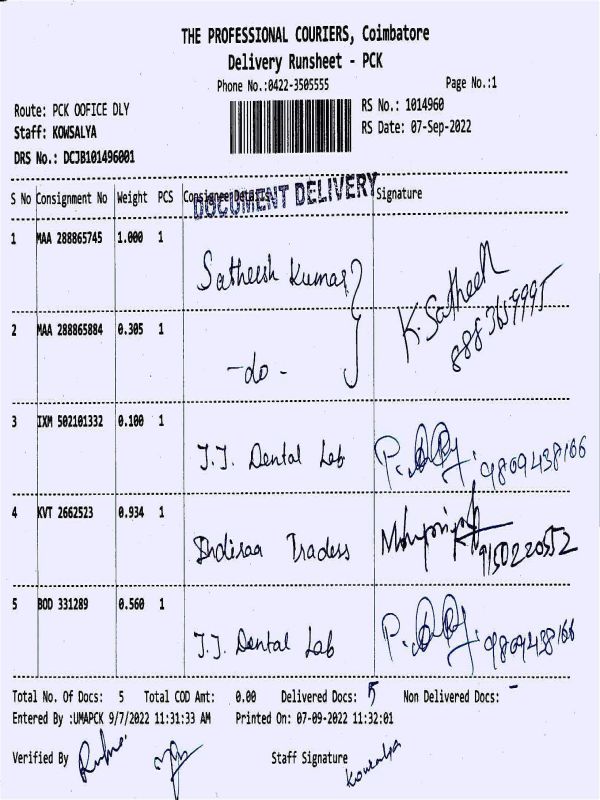 THE PROFESSIONAL COURIERS, Coimbatore
Delivery Runsheet - PCK
Phone No.:0422-3505555 Page No.:1
Route: PCK OOFICE DLY RS No.: 1014960
Staff: KOWSALYA RS Date: 07-Sep-2022
DRS No.: DCJB101496001
DOCUMENT DELIVERY
S No Consignment No Weight PCS Consignee Details Signature
1 MAA 288865745 1.000 1
Satheesh Kumar K. Satheesh
2 MAA 288865884 0.305 1
-do-
3 IXM 502101332 0.100 1
J.J. Dental Lab 9809438166
4 KVT 2662523 0.934 1
Indiraa Traders 9150220552
5 BOD 331289 0.560 1
J.J. Dental Lab 9809438166
Total No. Of Docs: 5 Total COD Amt: 0.00 Delivered Docs: 5 Non Delivered Docs: -
Entered By :UMAPCK 9/7/2022 11:31:33 AM Printed On: 07-09-2022 11:32:01
Verified By Staff Signature Kowsalya